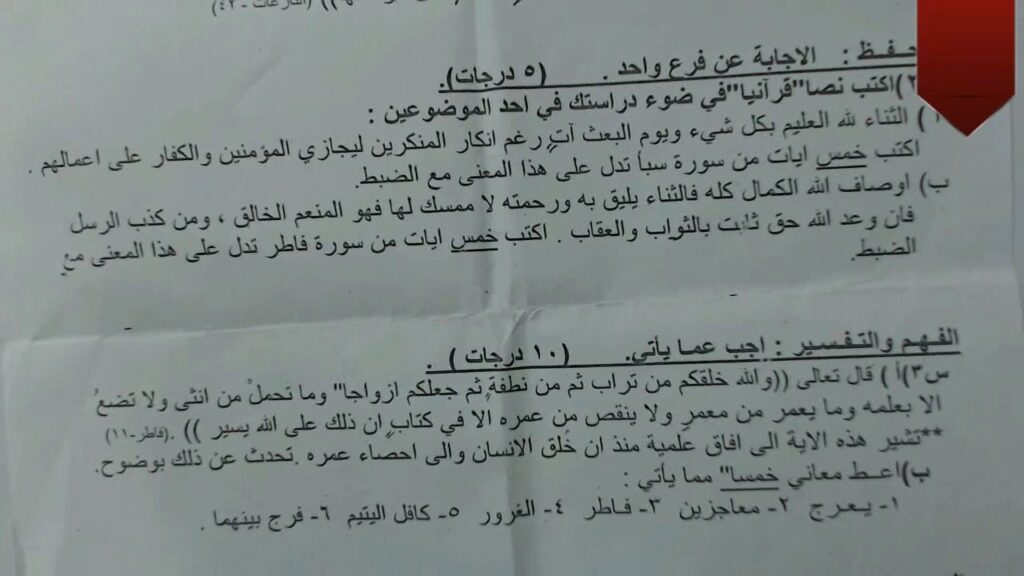 (النازعات -٤٢)
حفظ : الاجابة عن فرع واحد . (٥ درجات).
٢)اكتب نصا"قرآنيا"في ضوء دراستك في احد الموضوعين :
أ) الثناء لله العليم بكل شيء ويوم البعث آتٍ رغم انكار المنكرين ليجازي المؤمنين والكفار على اعمالهم .
اكتب خمس ايات من سورة سبأ تدل على هذا المعنى مع الضبط.
ب) اوصاف الله الكمال كله فالثناء يليق به ورحمته لا ممسك لها فهو المنعم الخالق ، ومن كذب الرسل
فان وعد الله حق ثابت بالثواب والعقاب . اكتب خمس ايات من سورة فاطر تدل على هذا المعنى مع
الضبط.
الفهم والتفسير : اجب عما يأتي. (١٠ درجات) .
س٣)أ) قال تعالى ((والله خلقكم من تراب ثم من نطفةٍ ثم جعلكم ازواجا" وما تحملُ من انثى ولا تضعُ
الا بعلمه وما يعمر من معمرٍ ولا ينقص من عمره الا في كتابٍ ان ذلك على الله يسير )) .(فاطر-١١)
**تشير هذه الاية الى افاق علمية منذ ان خلق الانسان والى احصاء عمره .تحدث عن ذلك بوضوح.
ب)اعط معاني خمسا" مما يأتي :
١- يعرج ٢- معاجزين ٣- فاطر ٤- الغرور ٥- كافل اليتيم ٦- فرج بينهما .